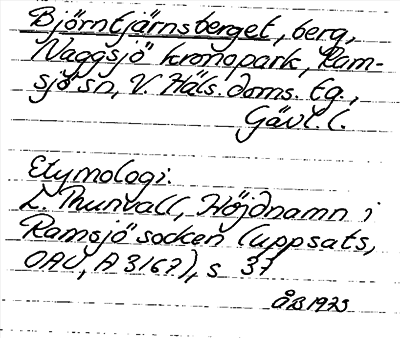 Björntjärnsberget, berg,
Naggsjö kronopark, Ram-
sjö sn, V. Häls. doms. tg.,
Gävl. l.
Etymologi.
L. Thunvall, Höjdnamn i
Ramsjö socken (uppsats,
OAU, A 3167), s 37
ÅB 1975